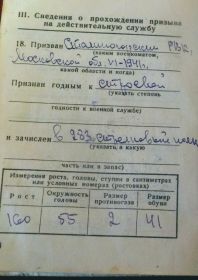 III. Сведения о прохождении призыва
на действительную службу
18. Призван Сталиногорским РВК,
(каким военкоматом,
Московской обл. VI-1941г.
какой области и когда)
Признан годным к строевой
(указать степень
годности к военной службе)
и зачислен в 283 стрелковый полк
(указать, в какую
часть или в запас)
Измерения роста, головы, ступни в сантиметрах
или условных номерах (ростовках)
Рост Окружность головы Размер противогаза Размер обуви
160 55 2 41